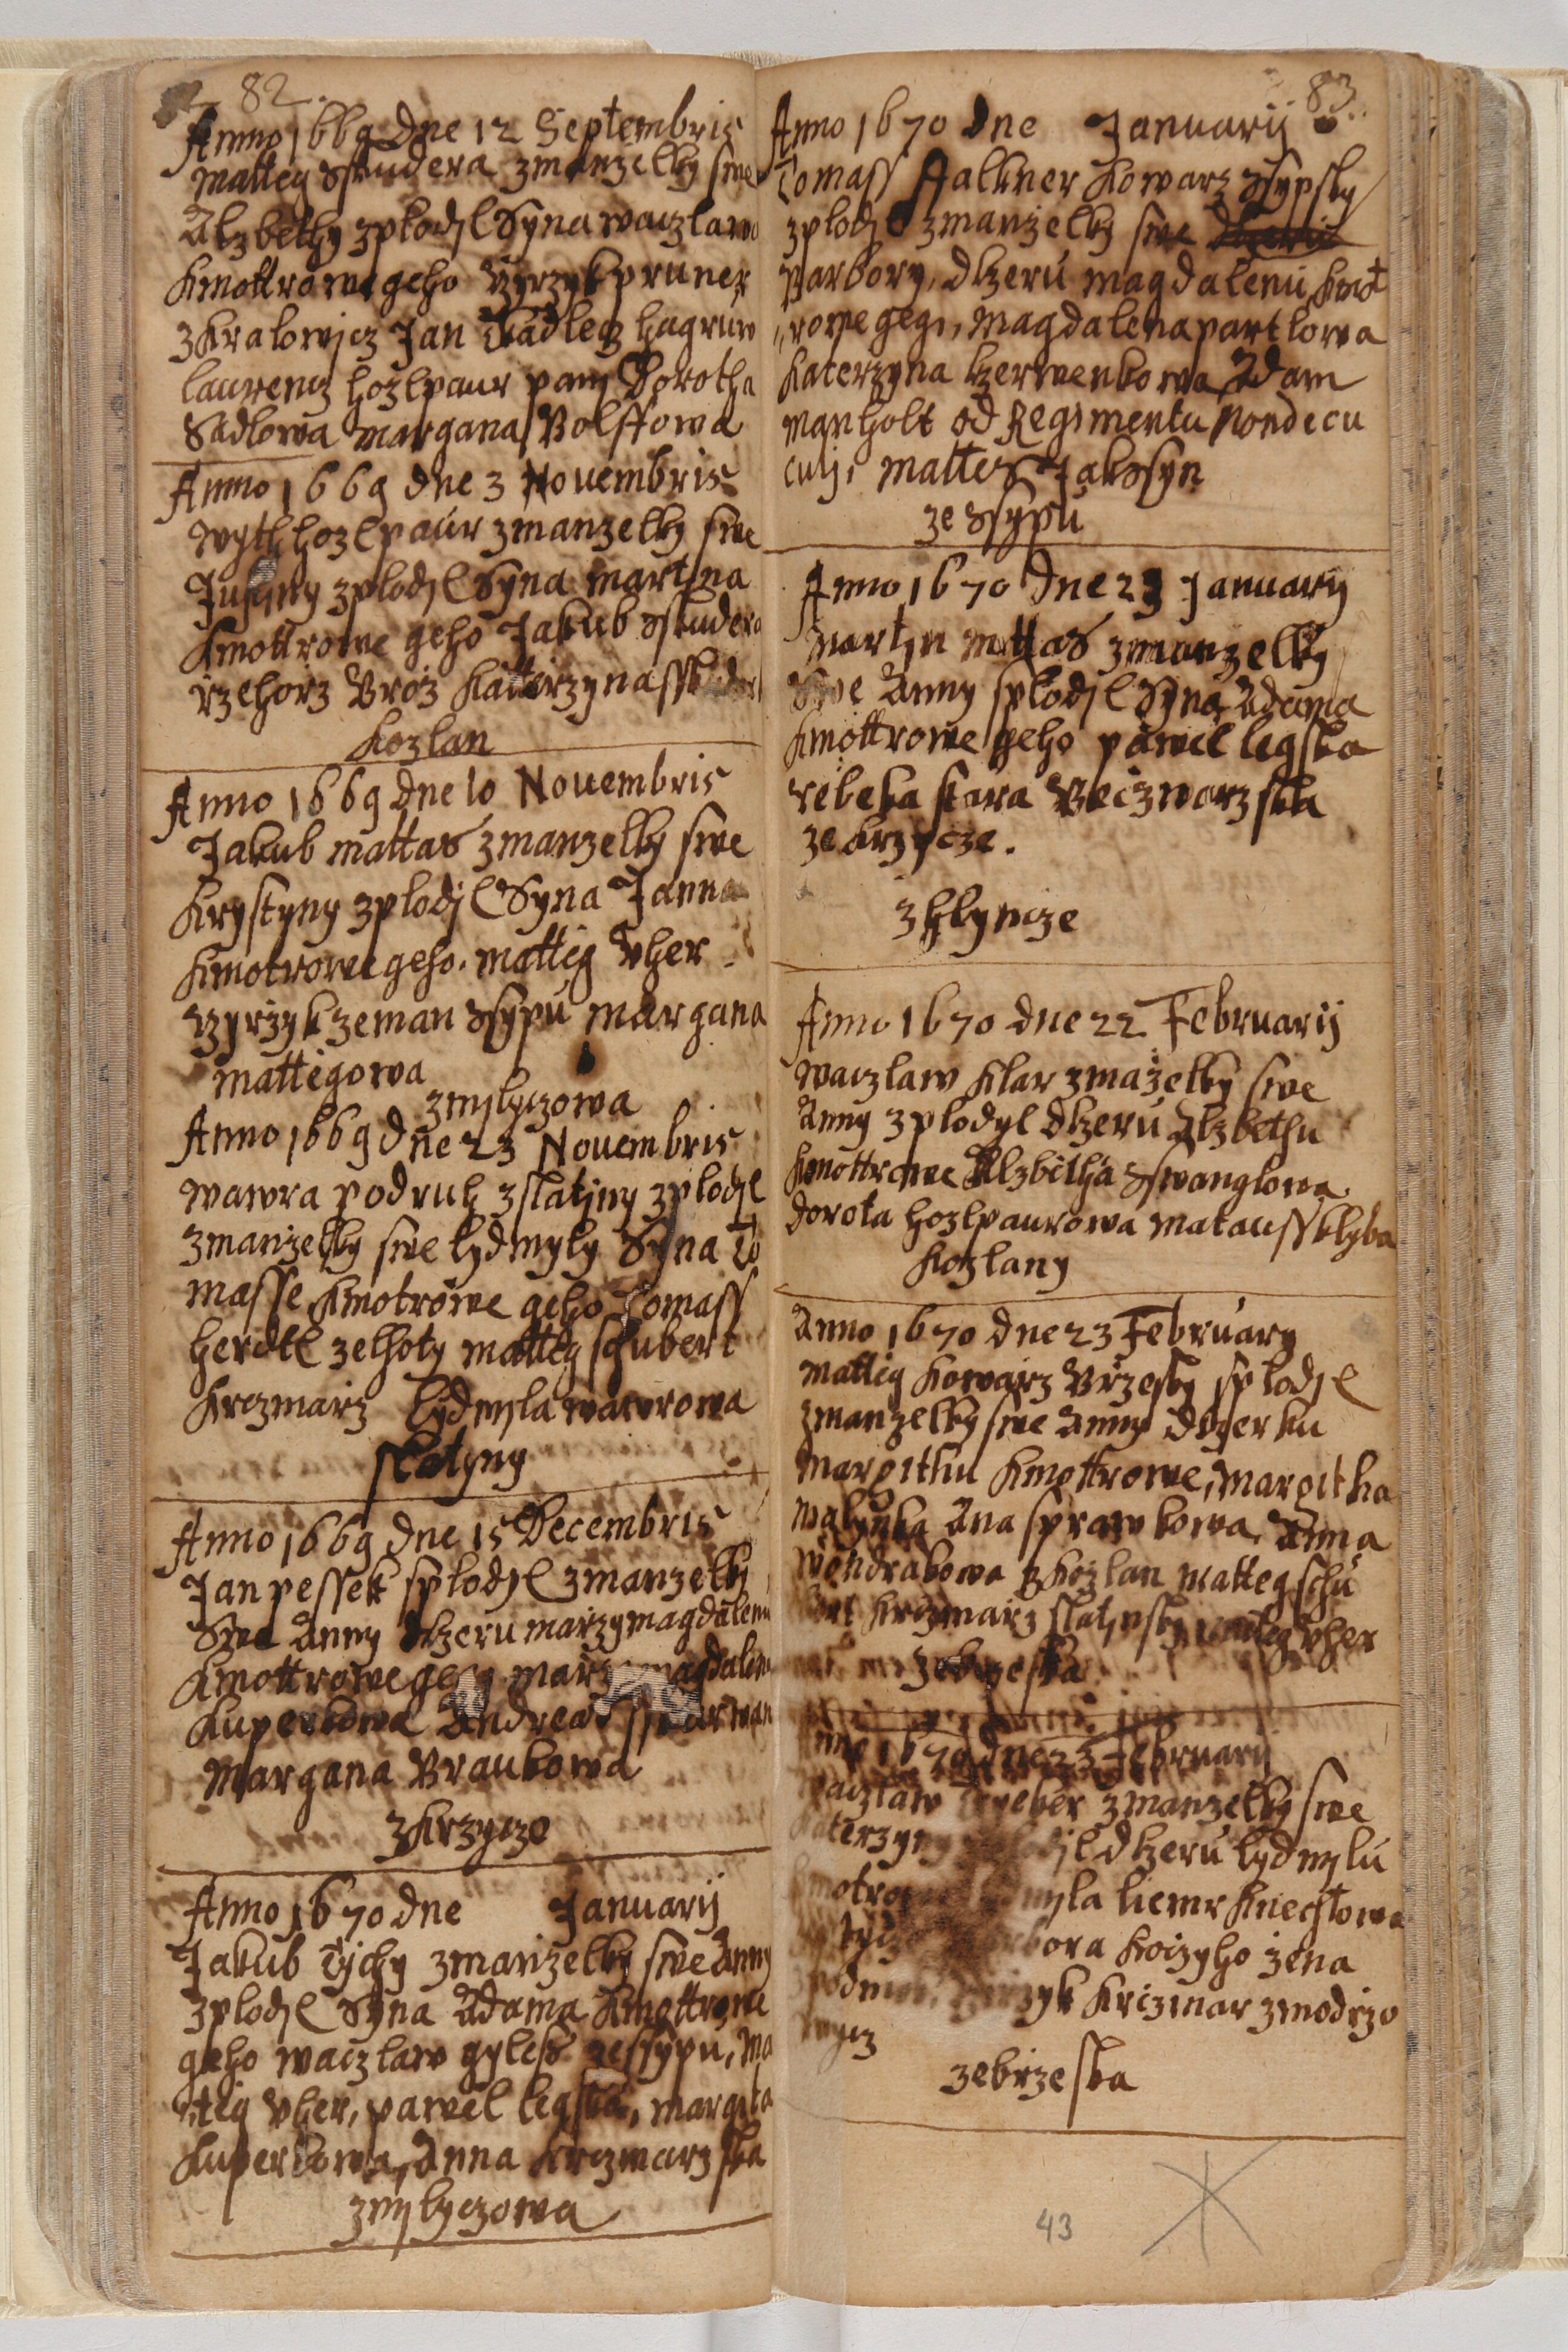 82.
Anno 1669 dne 12 Septembris
matteg Skudera zmanzelky swe
Alzbethy zplodjl Syna waczlawa
Kmottrowe geho Girzyk pruner
z Kralowjcz Jan Kadlecz hagruw
laurencz hozlpaur panj Dorotha
Sadlowa margana Volffowa
Anno 1669 dne 3 Nouembris
wyth hozlpaur zmanzelky swe
Justyny zplodjl Syna martjna
Kmottrowe geho Jakub Skudera
rzehorz Broz Katterzyna
Kozlan
Anno 1669 dne 10 Nouembris
Jakub mattas zmanzelky swe
Krystyny zplodjl Syna Janna
Kmotrowe geho. matteg Vher
Gyrzyk zeman Ssypu margana
mattegowa
zmjlyczowa
Anno 1669 dne 23 Nouembris
wawra podruh z slatjny zplodjl
zmanzelky swe lydmyly Syna To
masse Kmotrowe geho Tomass
herdtl zelhoty matteg schubert
Krczmarz lydmjla wawrowa
slatyny
Anno 1669 dne 15 Decembris
Jan pessek splodjl zmanzelky
Swe Anny dtzeru marzymagdalenu
Kmottrowe magdalena
Kuperkowa Andreas
margana Braukowa
zKrzycze
Anno 1670 dne Januarij
Jakub Tjchy zmanzelky swe Anny
zplodjl Syna Adama Kmottrowe
geho waczlaw gyless zessypu, ma
tteg Vher, pawel legska, margita
Kuperkowa, Anna Krczmarzska
zmjlyczowa
83.
Anno 1670 dne Januarij
Tomass Falkner Kowarz Ssypsky
zplodjl zmanzelky swe
Barbory, dtzeru magdalenu, Kmot
rowe gegi, Magdalena partlowa
Katerzyna tzerwenkowa Adam
manholt od Regimentu Mondecu
culj, mattes Jakssyn
ze Ssypu
Anno 1670 dne 23 January
martjn mattas zmanzelky
Swe Anny splodjl Syna Adama
Kmottrowe geho pawel legska
rebeka stara Beczwarzska
ze krzycze.
z hlyncze
Anno 1670 dne 22 Februarij
waczlaw Klar zmazelky swe
Anny zplodyl dtzeru Alzbethu
Kmottrowe Alzbetha Sswanglowa
dorota hozlpaurowa matauss klyka
Kozlany
Anno 1670 dne 23 February
matteg Kowarz Brzesky splodjl
zmanzelky swe Anny dtzerku
margithu Kmottrowe, margitha
malynka Ana sprawkowa Anna
wondrakowa z Kozlan matteg schu
bert Krczmarz slatjnsky matteg Vher
zebrzeska
Anno 1670 dne 23 Februarij
waczlaw zmanzelky swe
Katerzyny dtzeru lydmjlu
liemr Knechtowa
Koczyho zena
Girzyk Krczmar zmodrzo
wycz
zebrzeska
43